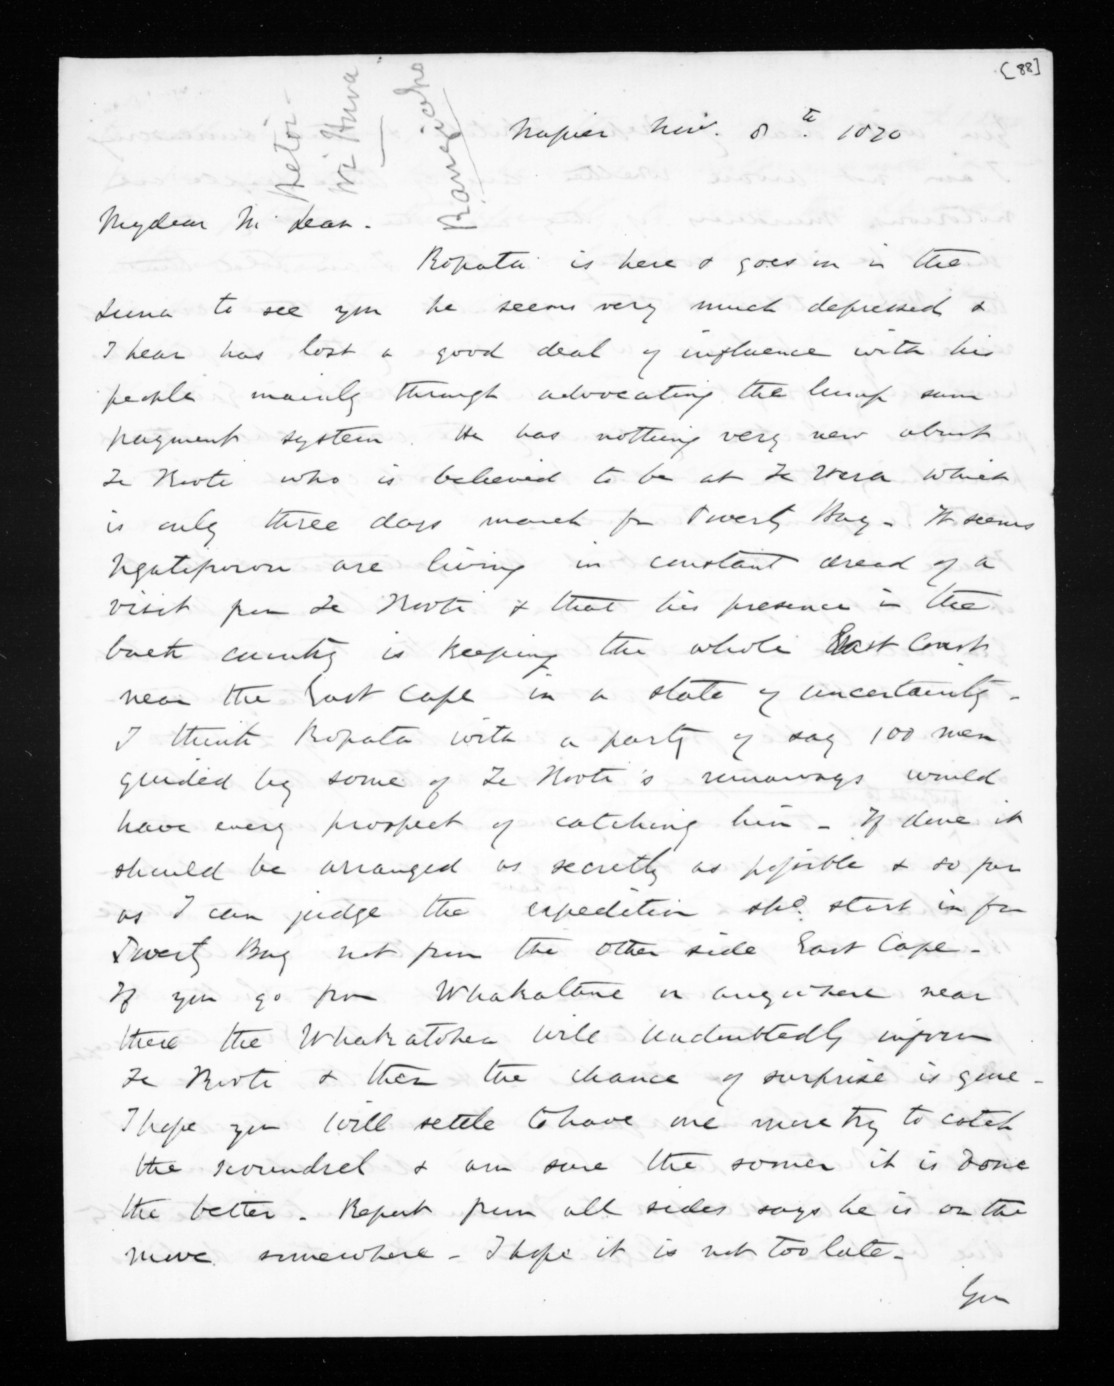 [88]
Aetoi -
Wi Huva
Rangiaho
Napier Nov. 8th. 1870
My dear Mc Lean.
Ropata is here & goes on in the
Luna to see you he seems very much depressed &
I hear has lost a good deal of influence with his
people mainly through advocating the lump sum
payment system. He has nothing very new about
Te Kooti who is believed to be at Te Wera which
is only three days march fm Poverty Bay - It seems
Ngatiporou are living in constant dread of a
visit from Te Kooti & that his presence in the
back country is keeping the whole East Coast
near the East Cape in a state of uncertainty -
I think Ropata with a party of say 100 men
guided by some of Te Kooti's runaways would
have every prospect of catching him - If done it
should be arranged as secretly as possible & so far
as I can judge the expedition shd. start in fm
Poverty Bay not from the other side East Cape -
If you go from Whakatane or anywhere near
there the Whakatohea will undoubtedly inform
Te Kooti & then the chance of surprise is gone -
I hope you will settle to have one more try to catch
the scoundrel & am sure the sooner it is done
the better - Report from all sides says he is on the
move somewhere - I hope it is not too late -
You